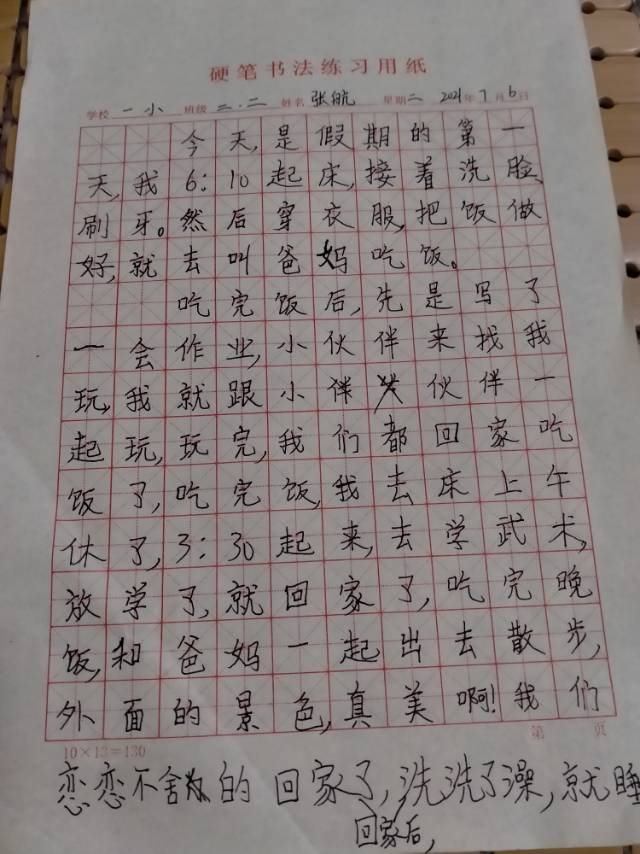 硬笔书法练习用纸
学校 一小 班级 三.二 姓名 张航 星期二 2021年7月6日
今天,是假期的第一
天,我6:10起床,接着洗脸、
刷牙。然后穿衣服,把饭做
好,就去叫爸妈吃饭。
吃完饭后,先是写了
一会作业,小伙伴来找我
玩,我就跟小伴伙伴一
起玩,玩完,我们都回家吃
饭了,吃完饭,我去床上午
休了,3:30起来,去学武术,
放学了,就回家了,吃完晚
饭,和爸妈一起出去散步,
外面的景色,真美啊!我们
第 页
10×13=130
恋恋不舍的回家了,洗洗了澡,就睡
回家后,